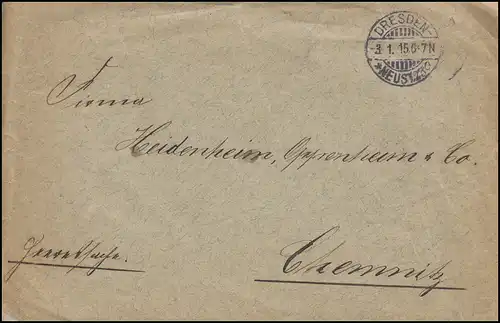 DRESDEN-
3 1. 15.6-7N
*NEUST.
Firma
Heidenheim, Oppenheim & Co.
Heeressache.
Chemnitz